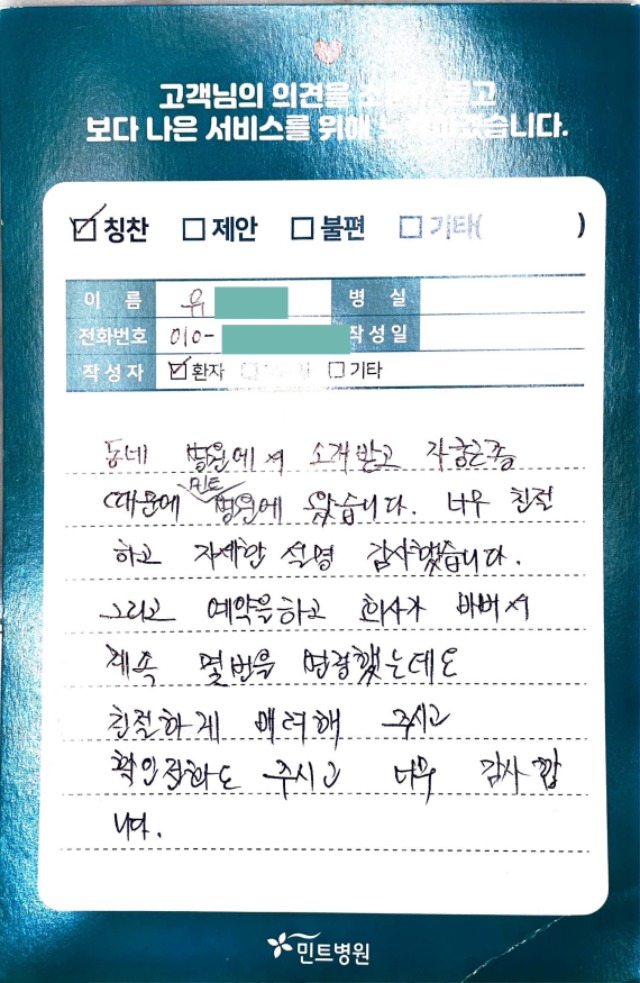 고객님의 의견을 듣고
보다 나은 서비스를 위해 노력하겠습니다.
칭찬 제안 불편 기타( )
이 름 유 병 실
전화번호 010- 작성일
작성자 환자 기타
동네 병원에서 소개받고 자궁근종
때문에 민트 병원에 왔습니다. 너무 친절
하고 자세한 설명 감사했습니다.
그리고 예약을하고 회사가 바뻐서
계속 몇번을 변경했는데도
친절하게 배려해 주시고
확인전화도 주시고 너무 감사합
니다.
민트병원